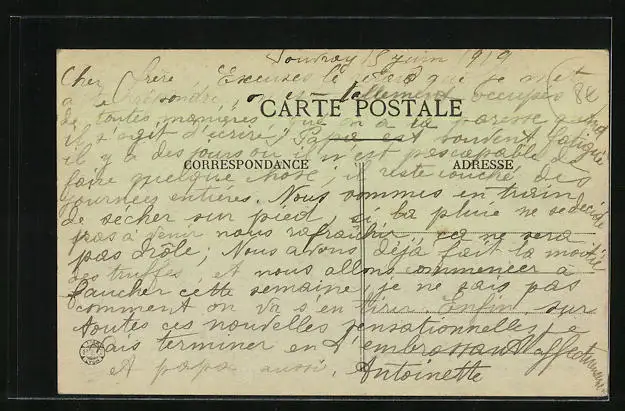 15 juin 1919
Cher frère, Excuses le retard que je met
a te répondre, on est tellement occupés 82
CARTE POSTALE
de toutes manières, que on a la paresse quand
il s'agit d'écrire; Papa est souvent fatigué
il y a des jours ou il n'est pas capable de
CORRESPONDANCE ADRESSE
faire quelque chose, il reste couché des
journées entières. Nous sommes en train
de sécher sur pied, si la pluie ne se décide
pas à venir nous rafraîchir ça ne sera
pas drôle; Nous avons déjà fait la moitié
des truffes, et nous allons commencer a
faucher cette semaine, je ne sais pas
comment on va s'en tirer. Enfin, sur
toutes ces nouvelles sensationnelles, je
vais terminer en t'embrassant affectueusement
et papa aussi. Antoinette